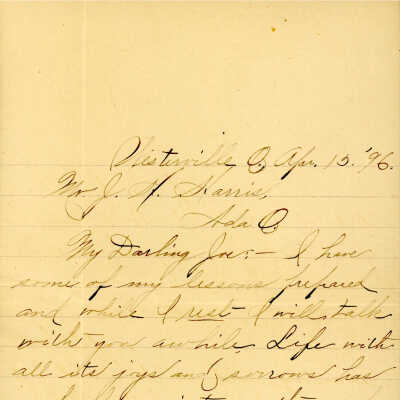 Westerville, O., Apr. 15, '96.
Mr. J. H. Harris,
Ada O.
My Darling Joe:— I have
some of my lessons prepared
and while I rest I will talk
with you awhile. Life with
all its joys and sorrows has